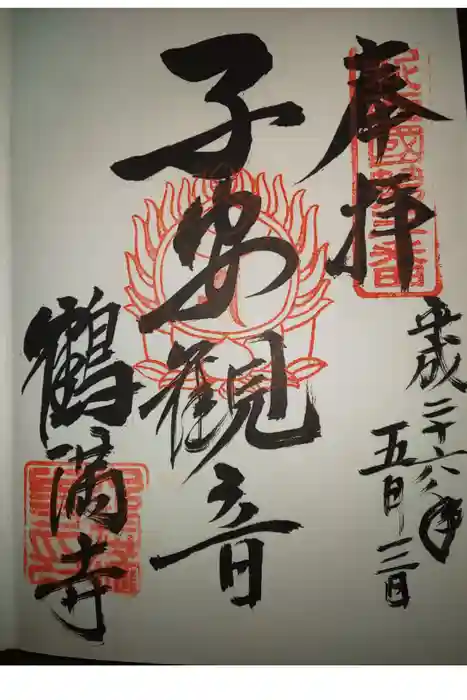 奉拝
平成二十六年
五月三日
子安観音
鶴満寺